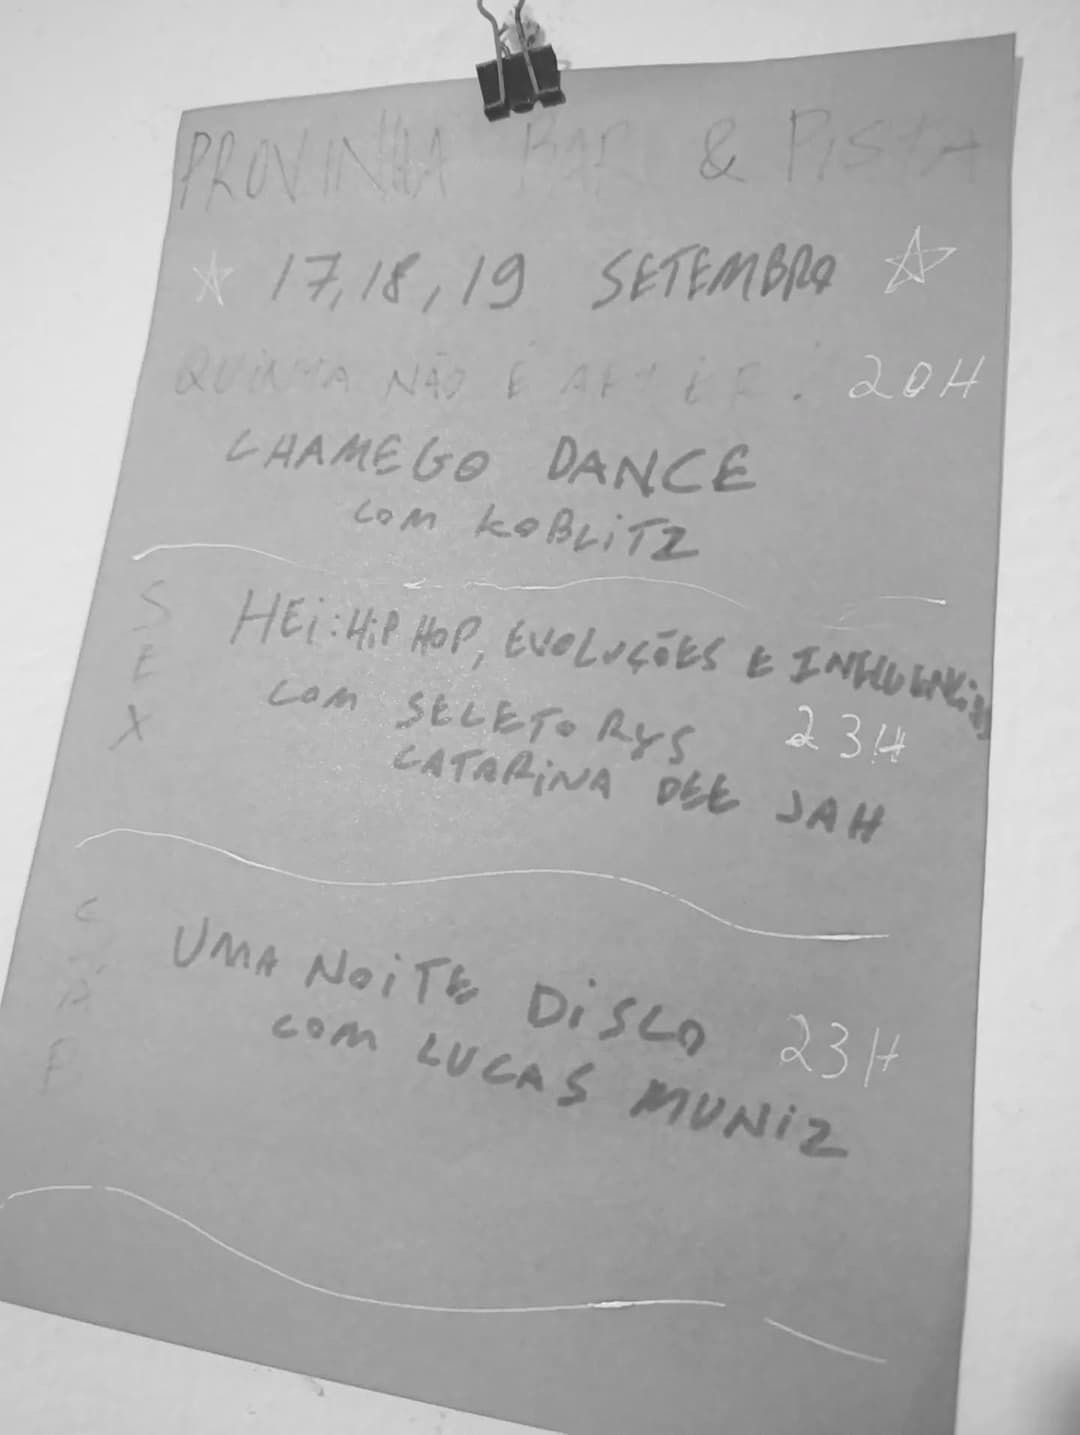 PROVINHA BAR & PISTA
17, 18, 19 SETEMBRO
QUINTA NÃO É AFTER! 20H
CHAMEGO DANCE
COM KOBLITZ
SEX
HEI: HIP HOP, EVOLUÇÕES E INFLUENCIAS
COM SELETO RYS 23H
CATARINA DEE JAH
SÁB
UMA NOITE DISCO 23H
COM LUCAS MUNIZ